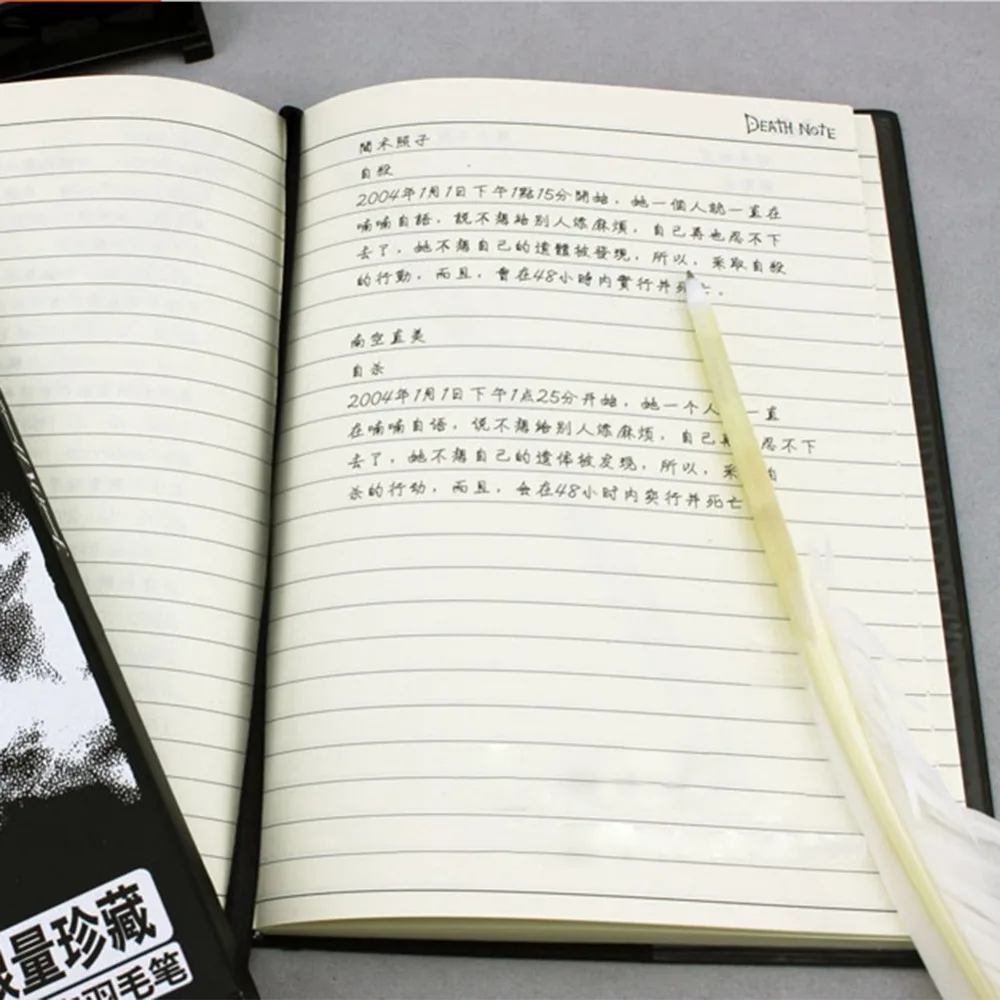 DEATH NOTE
間木照子
自殺
2004年1月1日下午1點15分開始，她一個人說一直在
喃喃自語，說不想給別人添麻煩，自己再也忍不下
去了，她不想自己的遺體被發現，所以，采取自殺
的行動，而且，會在48小時內實行并死亡．
南空直美
自杀
2004年1月1日下午1点25分开始，她一个人一直
在喃喃自语，说不想给别人添麻烦，自己再忍不下
去了，她不想自己的遗体被发现，所以，采自
杀的行动，而且，会在48小时内实行并死亡
限量珍藏
羽毛笔